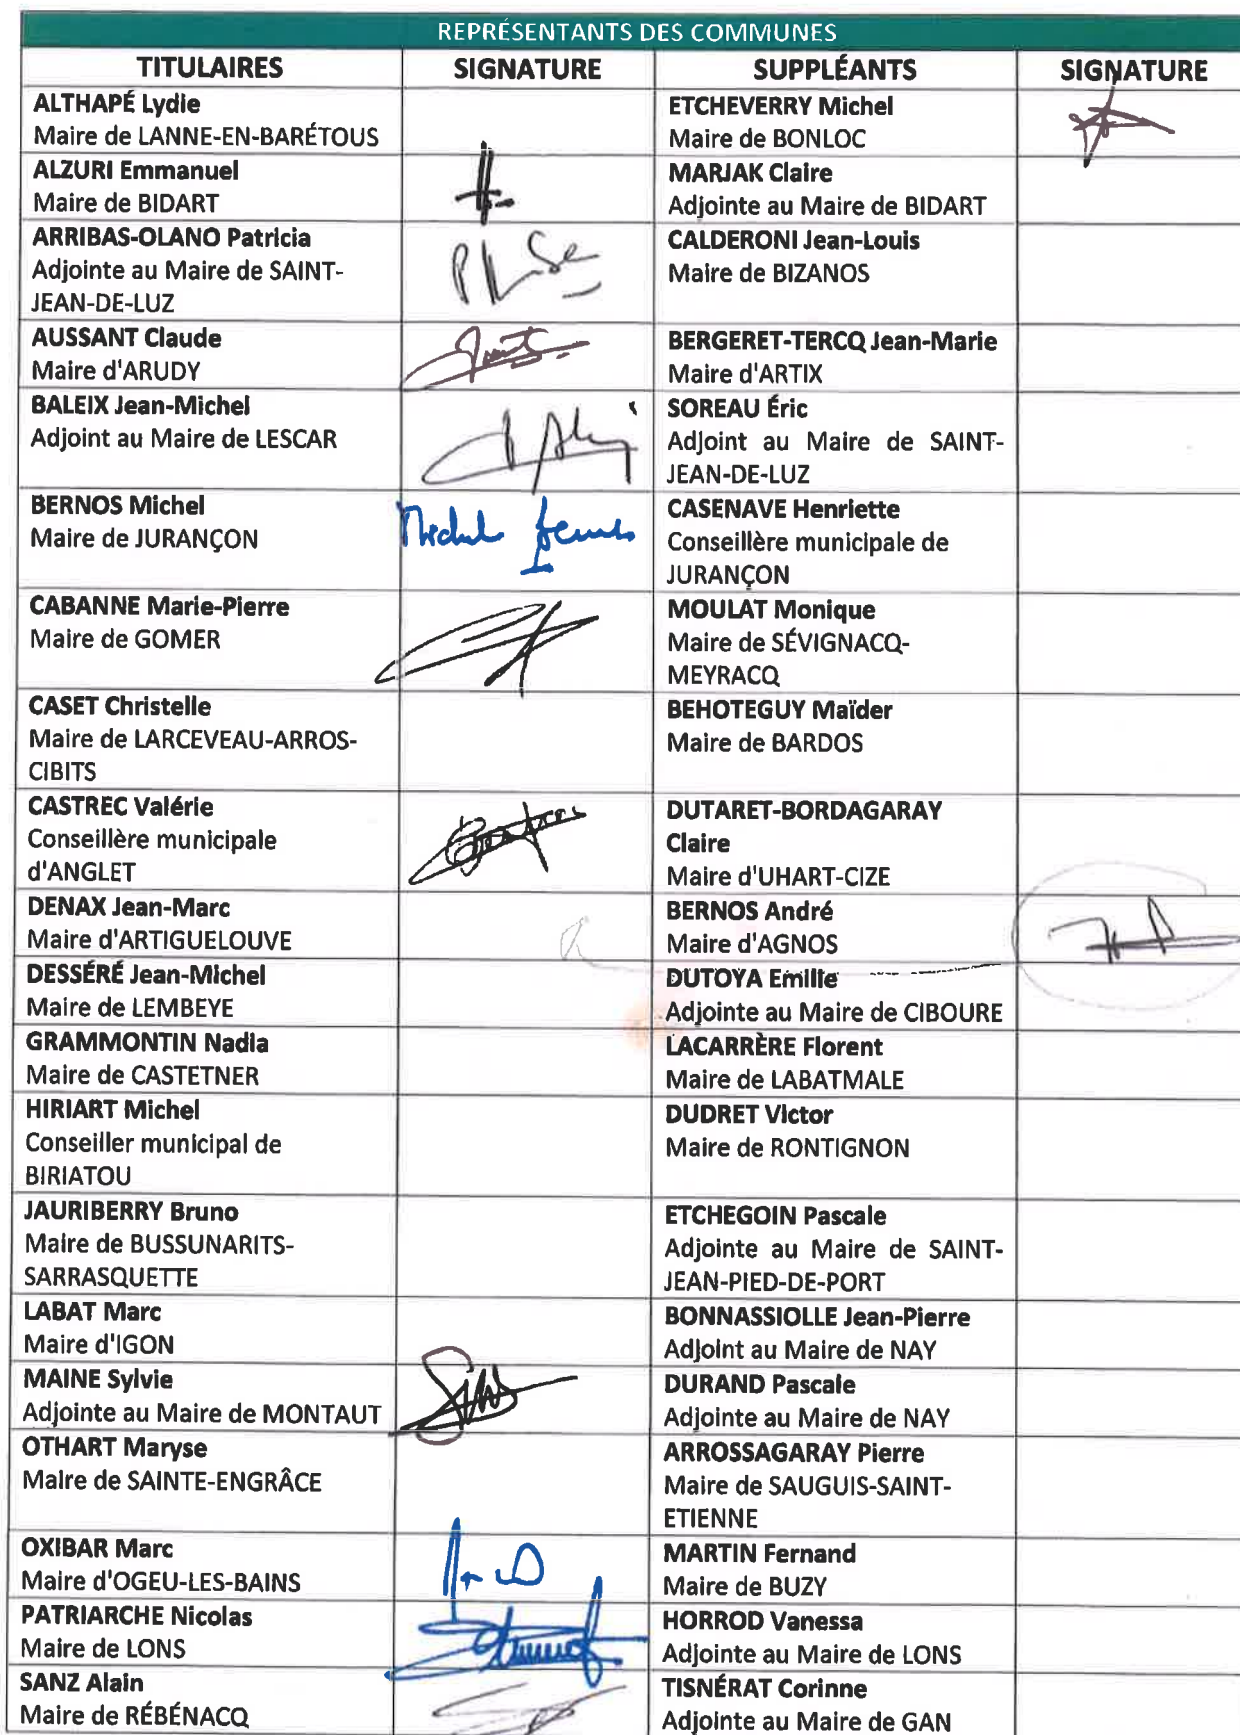 REPRÉSENTANTS DES COMMUNES
TITULAIRES SIGNATURE SUPPLÉANTS SIGNATURE
ALTHAPÉ Lydie
Maire de LANNE-EN-BARÉTOUS
ETCHEVERRY Michel
Maire de BONLOC
ALZURI Emmanuel
Maire de BIDART
MARJAK Claire
Adjointe au Maire de BIDART
ARRIBAS-OLANO Patricia
Adjointe au Maire de SAINT-
JEAN-DE-LUZ
CALDERONI Jean-Louis
Maire de BIZANOS
AUSSANT Claude
Maire d'ARUDY
BERGERET-TERCQ Jean-Marie
Maire d'ARTIX
BALEIX Jean-Michel
Adjoint au Maire de LESCAR
SOREAU Éric
Adjoint au Maire de SAINT-
JEAN-DE-LUZ
BERNOS Michel
Maire de JURANÇON
CASENAVE Henriette
Conseillère municipale de
JURANÇON
CABANNE Marie-Pierre
Maire de GOMER
MOULAT Monique
Maire de SÉVIGNACQ-
MEYRACQ
CASET Christelle
Maire de LARCEVEAU-ARROS-
CIBITS
BEHOTEGUY Maïder
Maire de BARDOS
CASTREC Valérie
Conseillère municipale
d'ANGLET
DUTARET-BORDAGARAY
Claire
Maire d'UHART-CIZE
DENAX Jean-Marc
Maire d'ARTIGUELOUVE
BERNOS André
Maire d'AGNOS
DESSÉRÉ Jean-Michel
Maire de LEMBEYE
DUTOYA Emilie
Adjointe au Maire de CIBOURE
GRAMMONTIN Nadia
Maire de CASTETNER
LACARRÈRE Florent
Maire de LABATMALE
HIRIART Michel
Conseiller municipal de
BIRIATOU
DUDRET Victor
Maire de RONTIGNON
JAURIBERRY Bruno
Maire de BUSSUNARITS-
SARRASQUETTE
ETCHEGOIN Pascale
Adjointe au Maire de SAINT-
JEAN-PIED-DE-PORT
LABAT Marc
Maire d'IGON
BONNASSIOLLE Jean-Pierre
Adjoint au Maire de NAY
MAINE Sylvie
Adjointe au Maire de MONTAUT
DURAND Pascale
Adjointe au Maire de NAY
OTHART Maryse
Maire de SAINTE-ENGRÂCE
ARROSSAGARAY Pierre
Maire de SAUGUIS-SAINT-
ETIENNE
OXIBAR Marc
Maire d'OGEU-LES-BAINS
MARTIN Fernand
Maire de BUZY
PATRIARCHE Nicolas
Maire de LONS
HORROD Vanessa
Adjointe au Maire de LONS
SANZ Alain
Maire de RÉBÉNACQ
TISNÉRAT Corinne
Adjointe au Maire de GAN